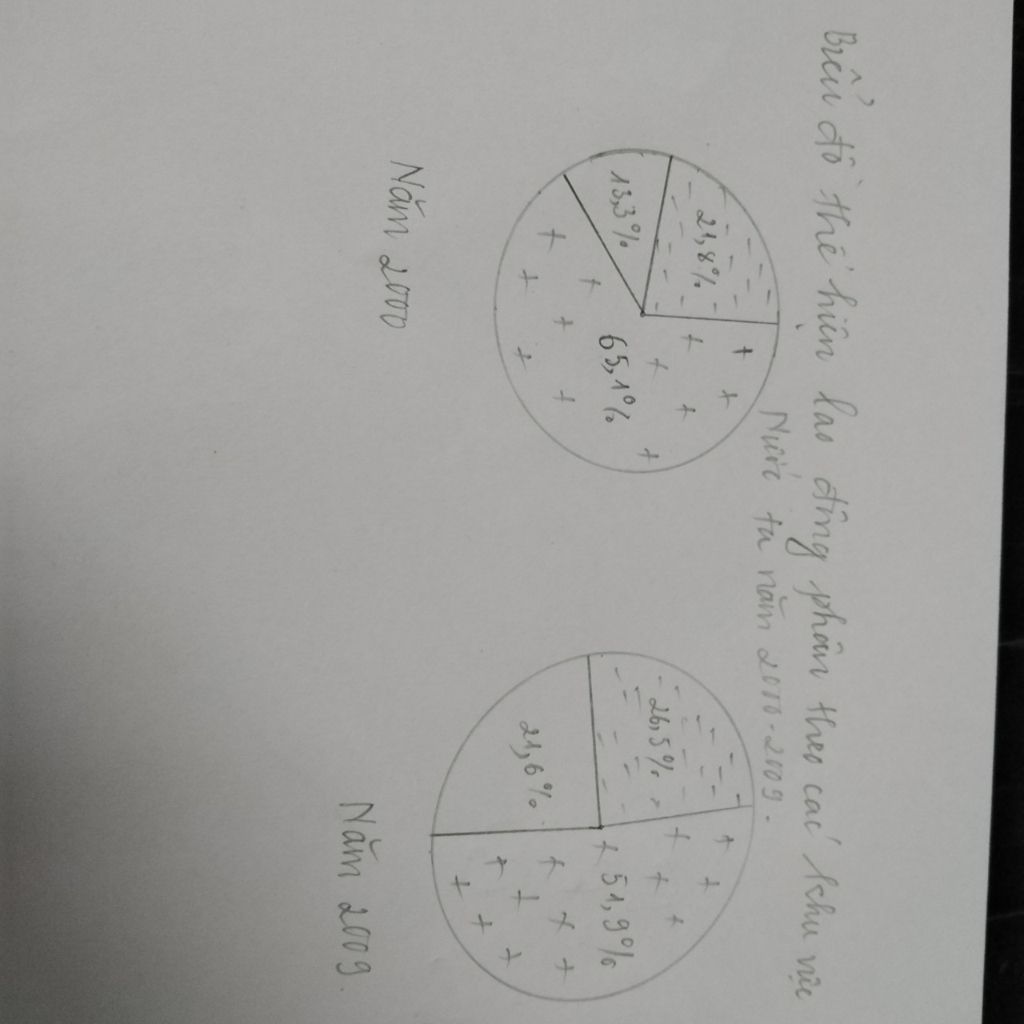 Biểu đồ thể hiện lao động phân theo các khu vực
Nước ta năm 2000-2009.
21,8%
13,3%
65,1%
26,5%
21,6%
51,9%
Năm 2000
Năm 2009